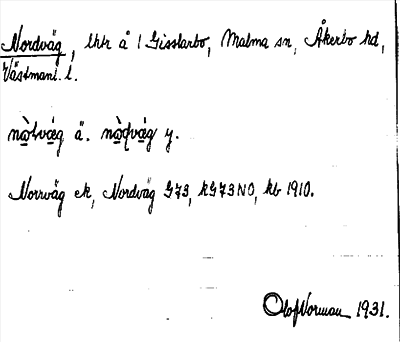 Nordväg, lhtr å 1 Gisslarbo, Malma sn, Åkerbo hd,
Västmanl. l.
nɷ̀tvæ̀g ä. nɷ̀ɖvæ̀g y.
Norrväg ek, Nordväg G73, kG73NO, kb 1910.
Olof Norman 1931.